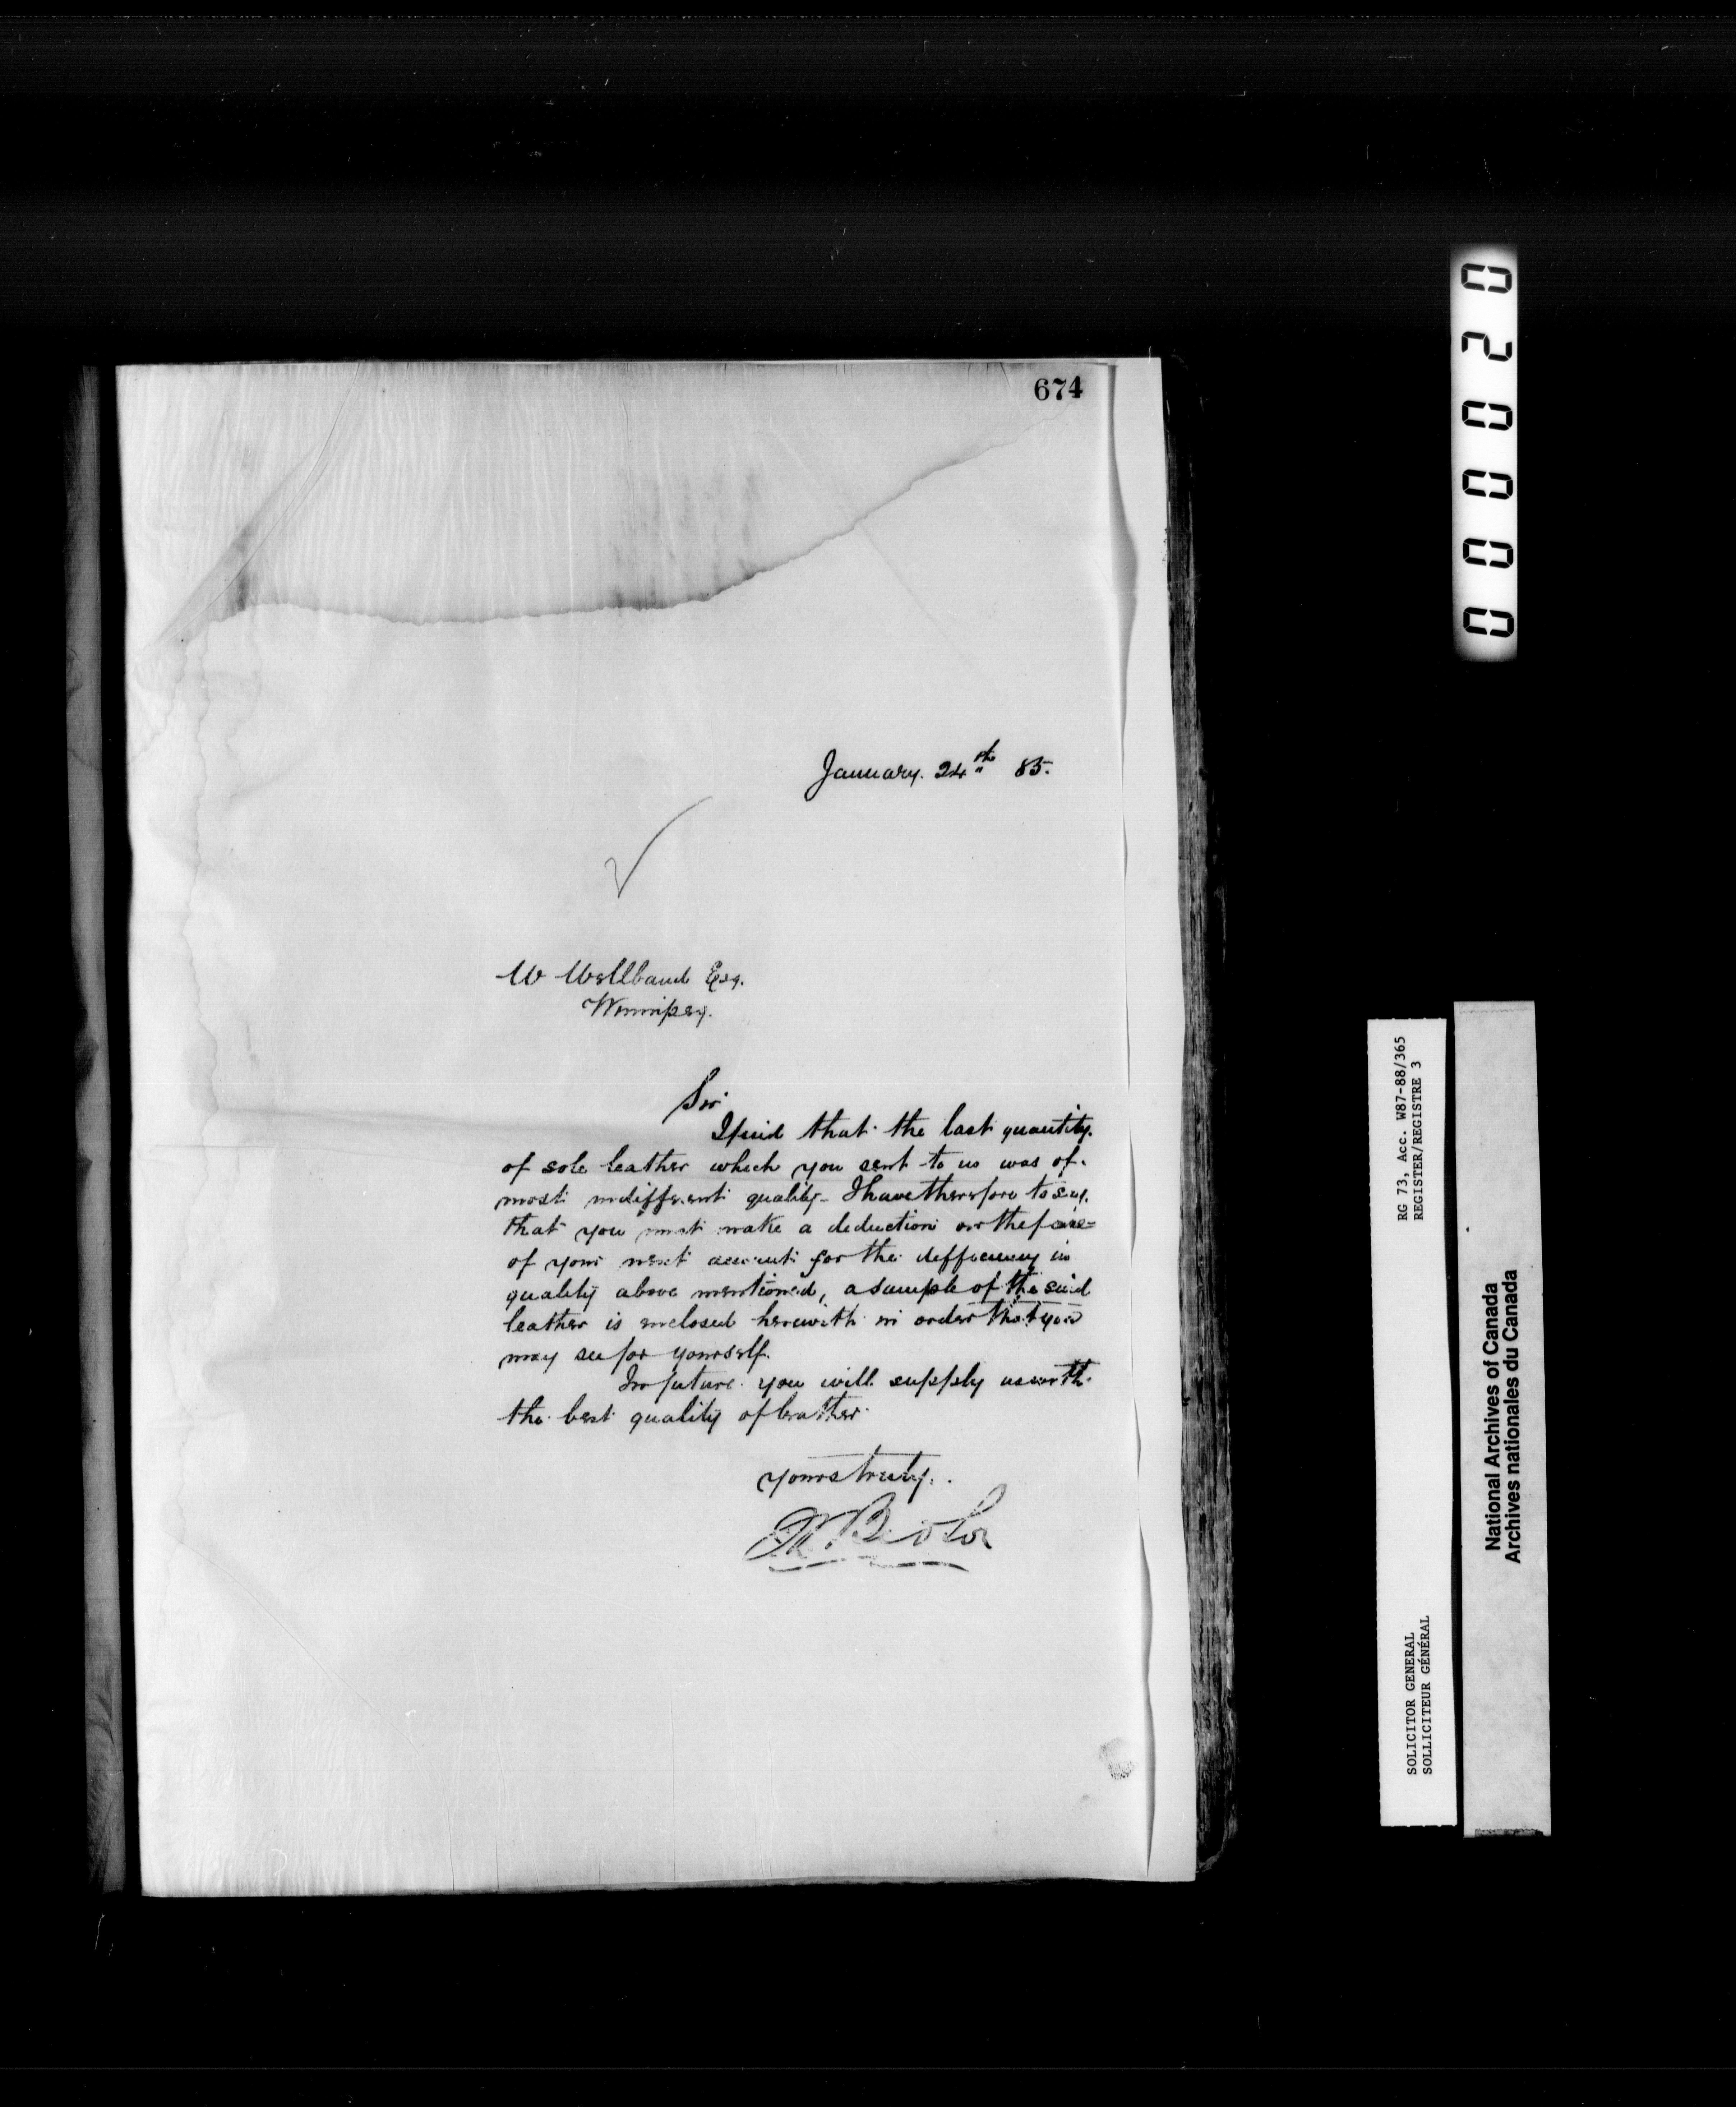 674
January. 24th 85.
W Wellband Esq.
Winnipeg.
Sir
I find that the last quantity.
of sole leather which you sent to us was of
most indifferent quality - I have therefore to say.
that you must make a deduction on the face
of your next account for the defficiency in
quality above mentioned, a sample of the said
leather is enclosed herewith in order that you
may see for yourself.
In future you will supply us with
the best quality of leather
yours truly.
000020
RG 73, Acc. W87-88/365
REGISTER/REGISTRE 3
SOLICITOR GENERAL
SOLLICITEUR GÉNÉRAL
National Archives of Canada
Archives nationales du Canada